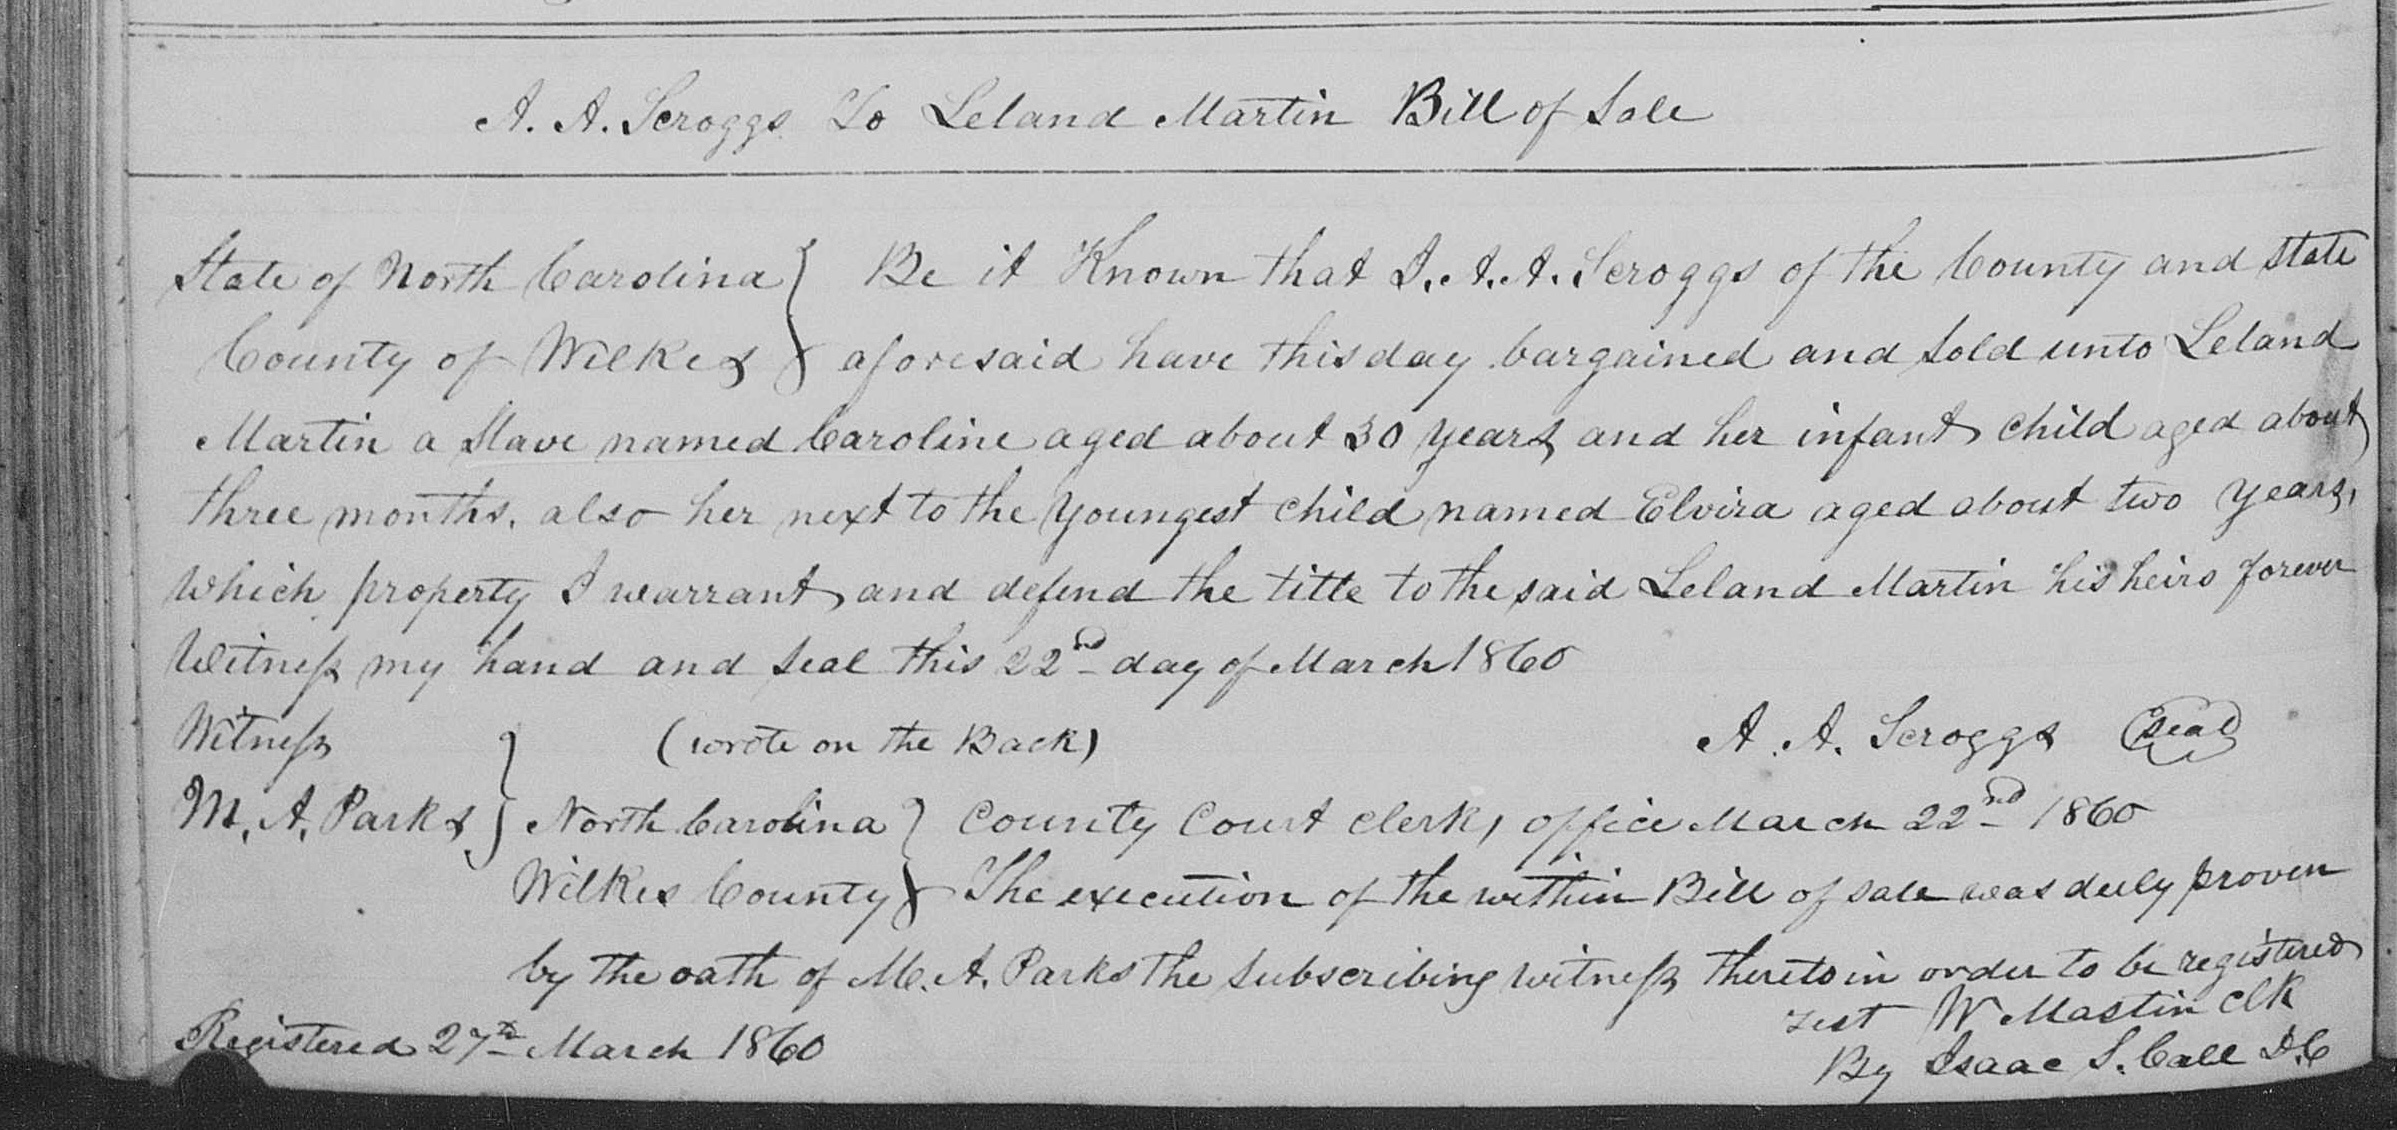 A. A. Scroggs To Leland Martin Bill of Sale
State of North Carolina } Be it Known that I. A. A. Scroggs of the County and State
County of Wilkes } aforesaid have this day bargained and Sold unto Leland
Martin a Slave named Caroline aged about 30 years and her infant child aged about
three months. also her next to the youngest child named Elvira aged about two years,
which property I warrant and defend the title to the said Leland Martin his heirs forever
Witness my hand and seal this 22nd day of March 1860
Witness } (wrote on the Back) A. A. Scroggs (Seal)
M. A. Parks } North Carolina } County Court Clerk, office March 22nd 1860
Wilkes County } The execution of the within Bill of sale was duly proven
by the oath of M. A. Parks the Subscribing witness thereto in order to be registered
Test W Mastin Clk
Registered 27th March 1860 By Isaac S. Call D.C